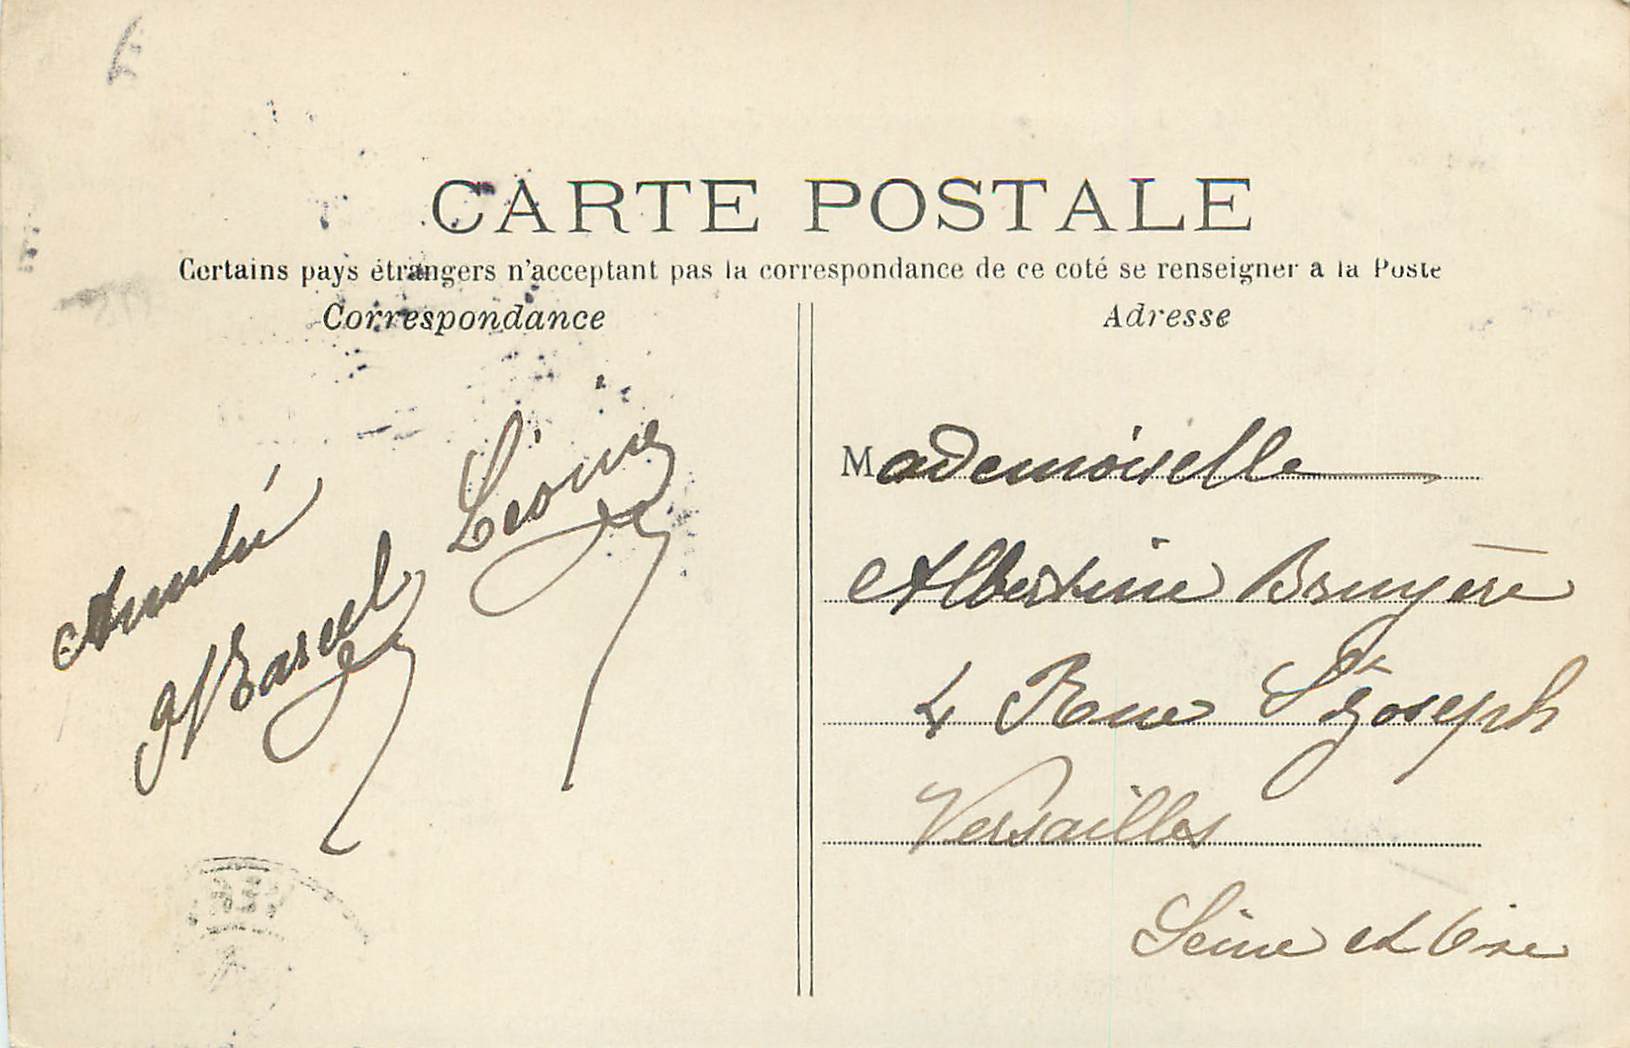 CARTE POSTALE
Certains pays étrangers n'acceptant pas la correspondance de ce coté se renseigner a la Poste
Correspondance
Adresse
Léonie
Marcel
Mademoiselle
Albertine Bruyère
4 Rue St Joseph
Versailles
Seine et Oise